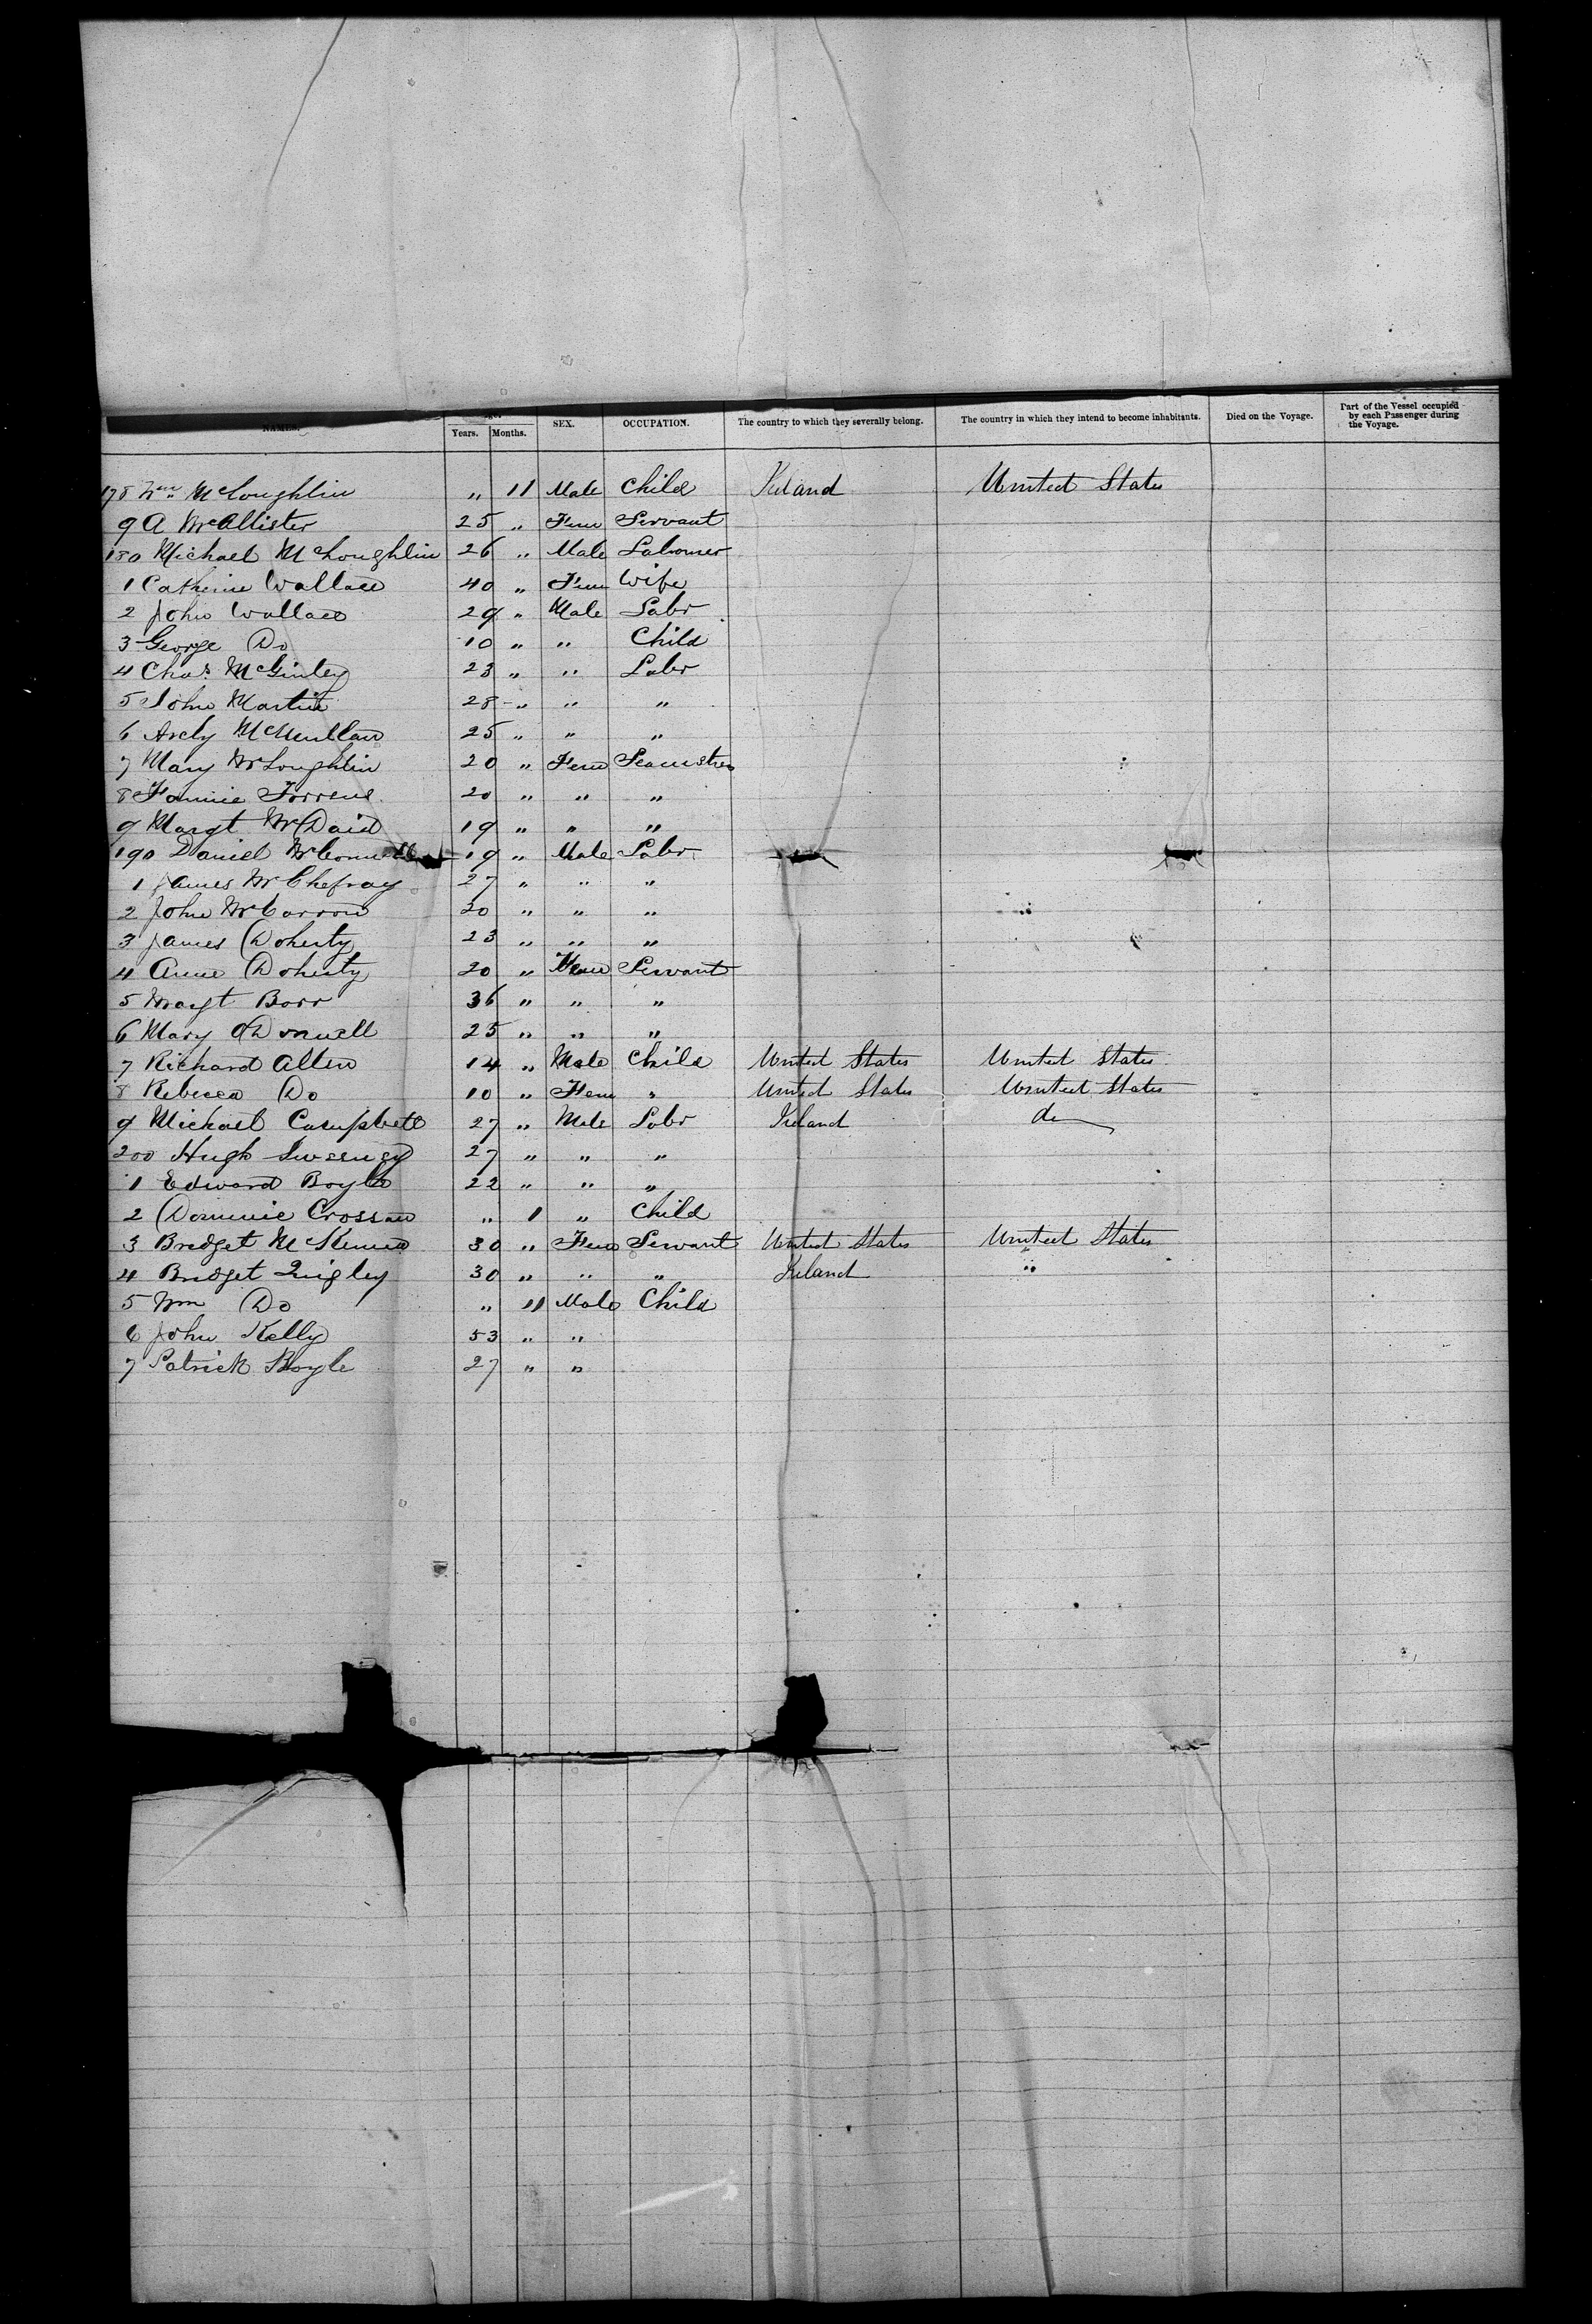 NAMES. Years. Months. SEX. OCCUPATION. The country to which they severally belong. The country in which they intend to become inhabitants. Died on the Voyage. Part of the Vessel occupied by each Passenger during the Voyage.
178 Wm McLoughlin " 11 Male Child Ireland United States
9 A McAllister 25 " Fem Servant
180 Michael McLoughlin 26 " Male Labourer
1 Catherine Wallace 40 " Fem Wife
2 John Wallace 29 " Male Labr
3 George Do 10 " " Child
4 Chas. McGinley 23 " " Labr
5 John Martin 28 " " "
6 Archy McMullan 25 " " "
7 Mary McLoughlin 20 " Fem Seamstress
8 Fannie Torrens 20 " " "
9 Margt McDaid 19 " " "
190 Daniel McConnell 19 " Male Labr
1 James 27 " " "
2 John McCarron 20 " " "
3 James Doherty 23 " " "
4 Anne Doherty 20 " Fem Servant
5 Margt Barr 36 " " "
6 Mary O'Donnell 25 " " "
7 Richard Allen 14 " Male Child United States United States
8 Rebecca Do 10 " Fem " United States United States
9 Michael Campbell 27 " Male Labr Ireland do
200 Hugh Sweeney 27 " " "
1 Edward Boyle 22 " " "
2 Dominic Crossan " 1 " Child
3 Bridget McKenna 30 " Fem Servant United States United States
4 Bridget Quigley 30 " " " Ireland "
5 Wm Do " 11 Male Child
6 John Kelly 53 " "
7 Patrick Boyle 27 " "